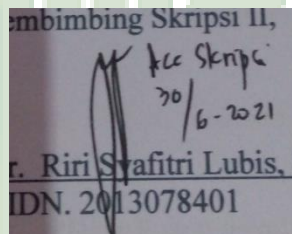 embimbing Skripsi II,
Acc Skripsi
30/6-2021
r. Riri Syafitri Lubis,
IDN. 2013078401